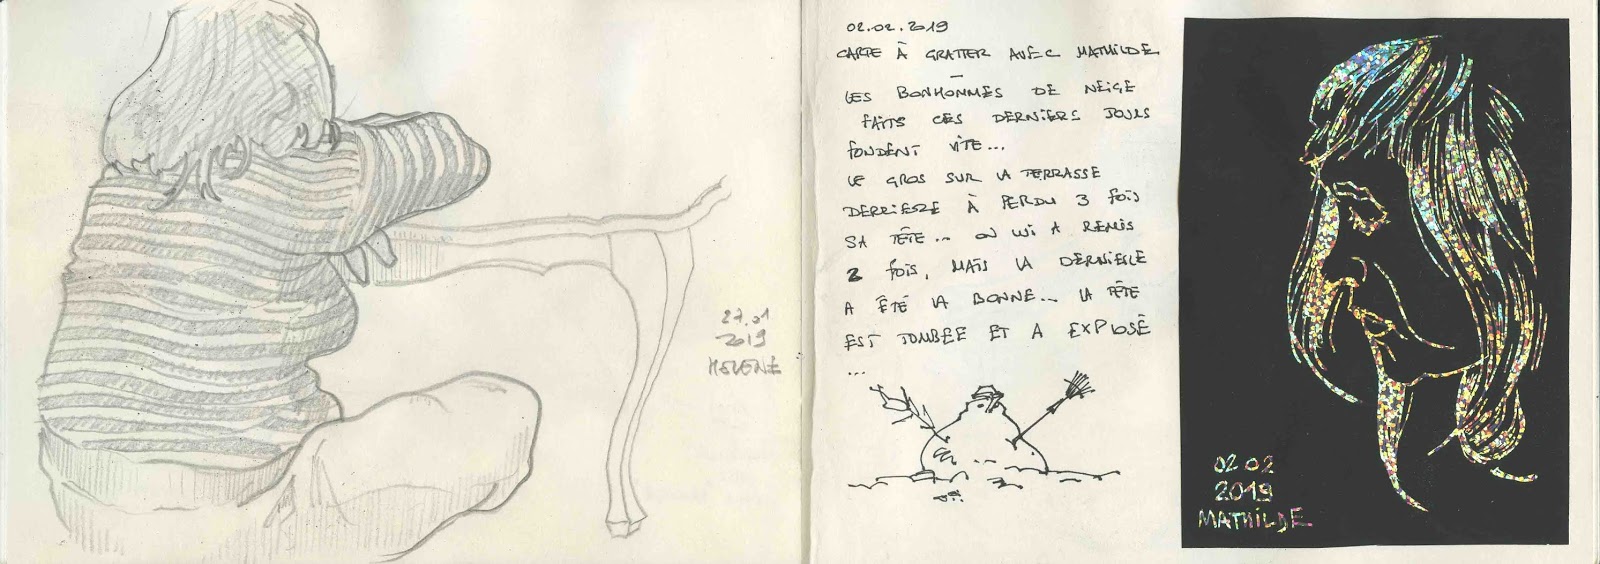 27.01
2019
HELENE
02.02.2019
CARTE À GRATTER AVEC MATHILDE
–
LES BONHOMMES DE NEIGE
FAITS CES DERNIERS JOURS
FONDENT VITE...
LE GROS SUR LA TERRASSE
DERRIERE À PERDU 3 FOIS
SA TÊTE... ON LUI A REMIS
2 FOIS, MAIS LA DERNIERE
A ÉTÉ LA BONNE... LA TÊTE
EST TOMBEE ET A EXPLOSÉ
...
02 02
2019
MATHILDE